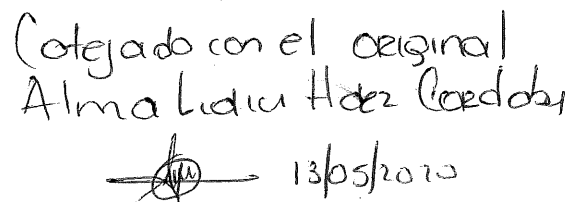 Cotejado con el original
Alma Lidia Hdez Cordoba
13/05/2020